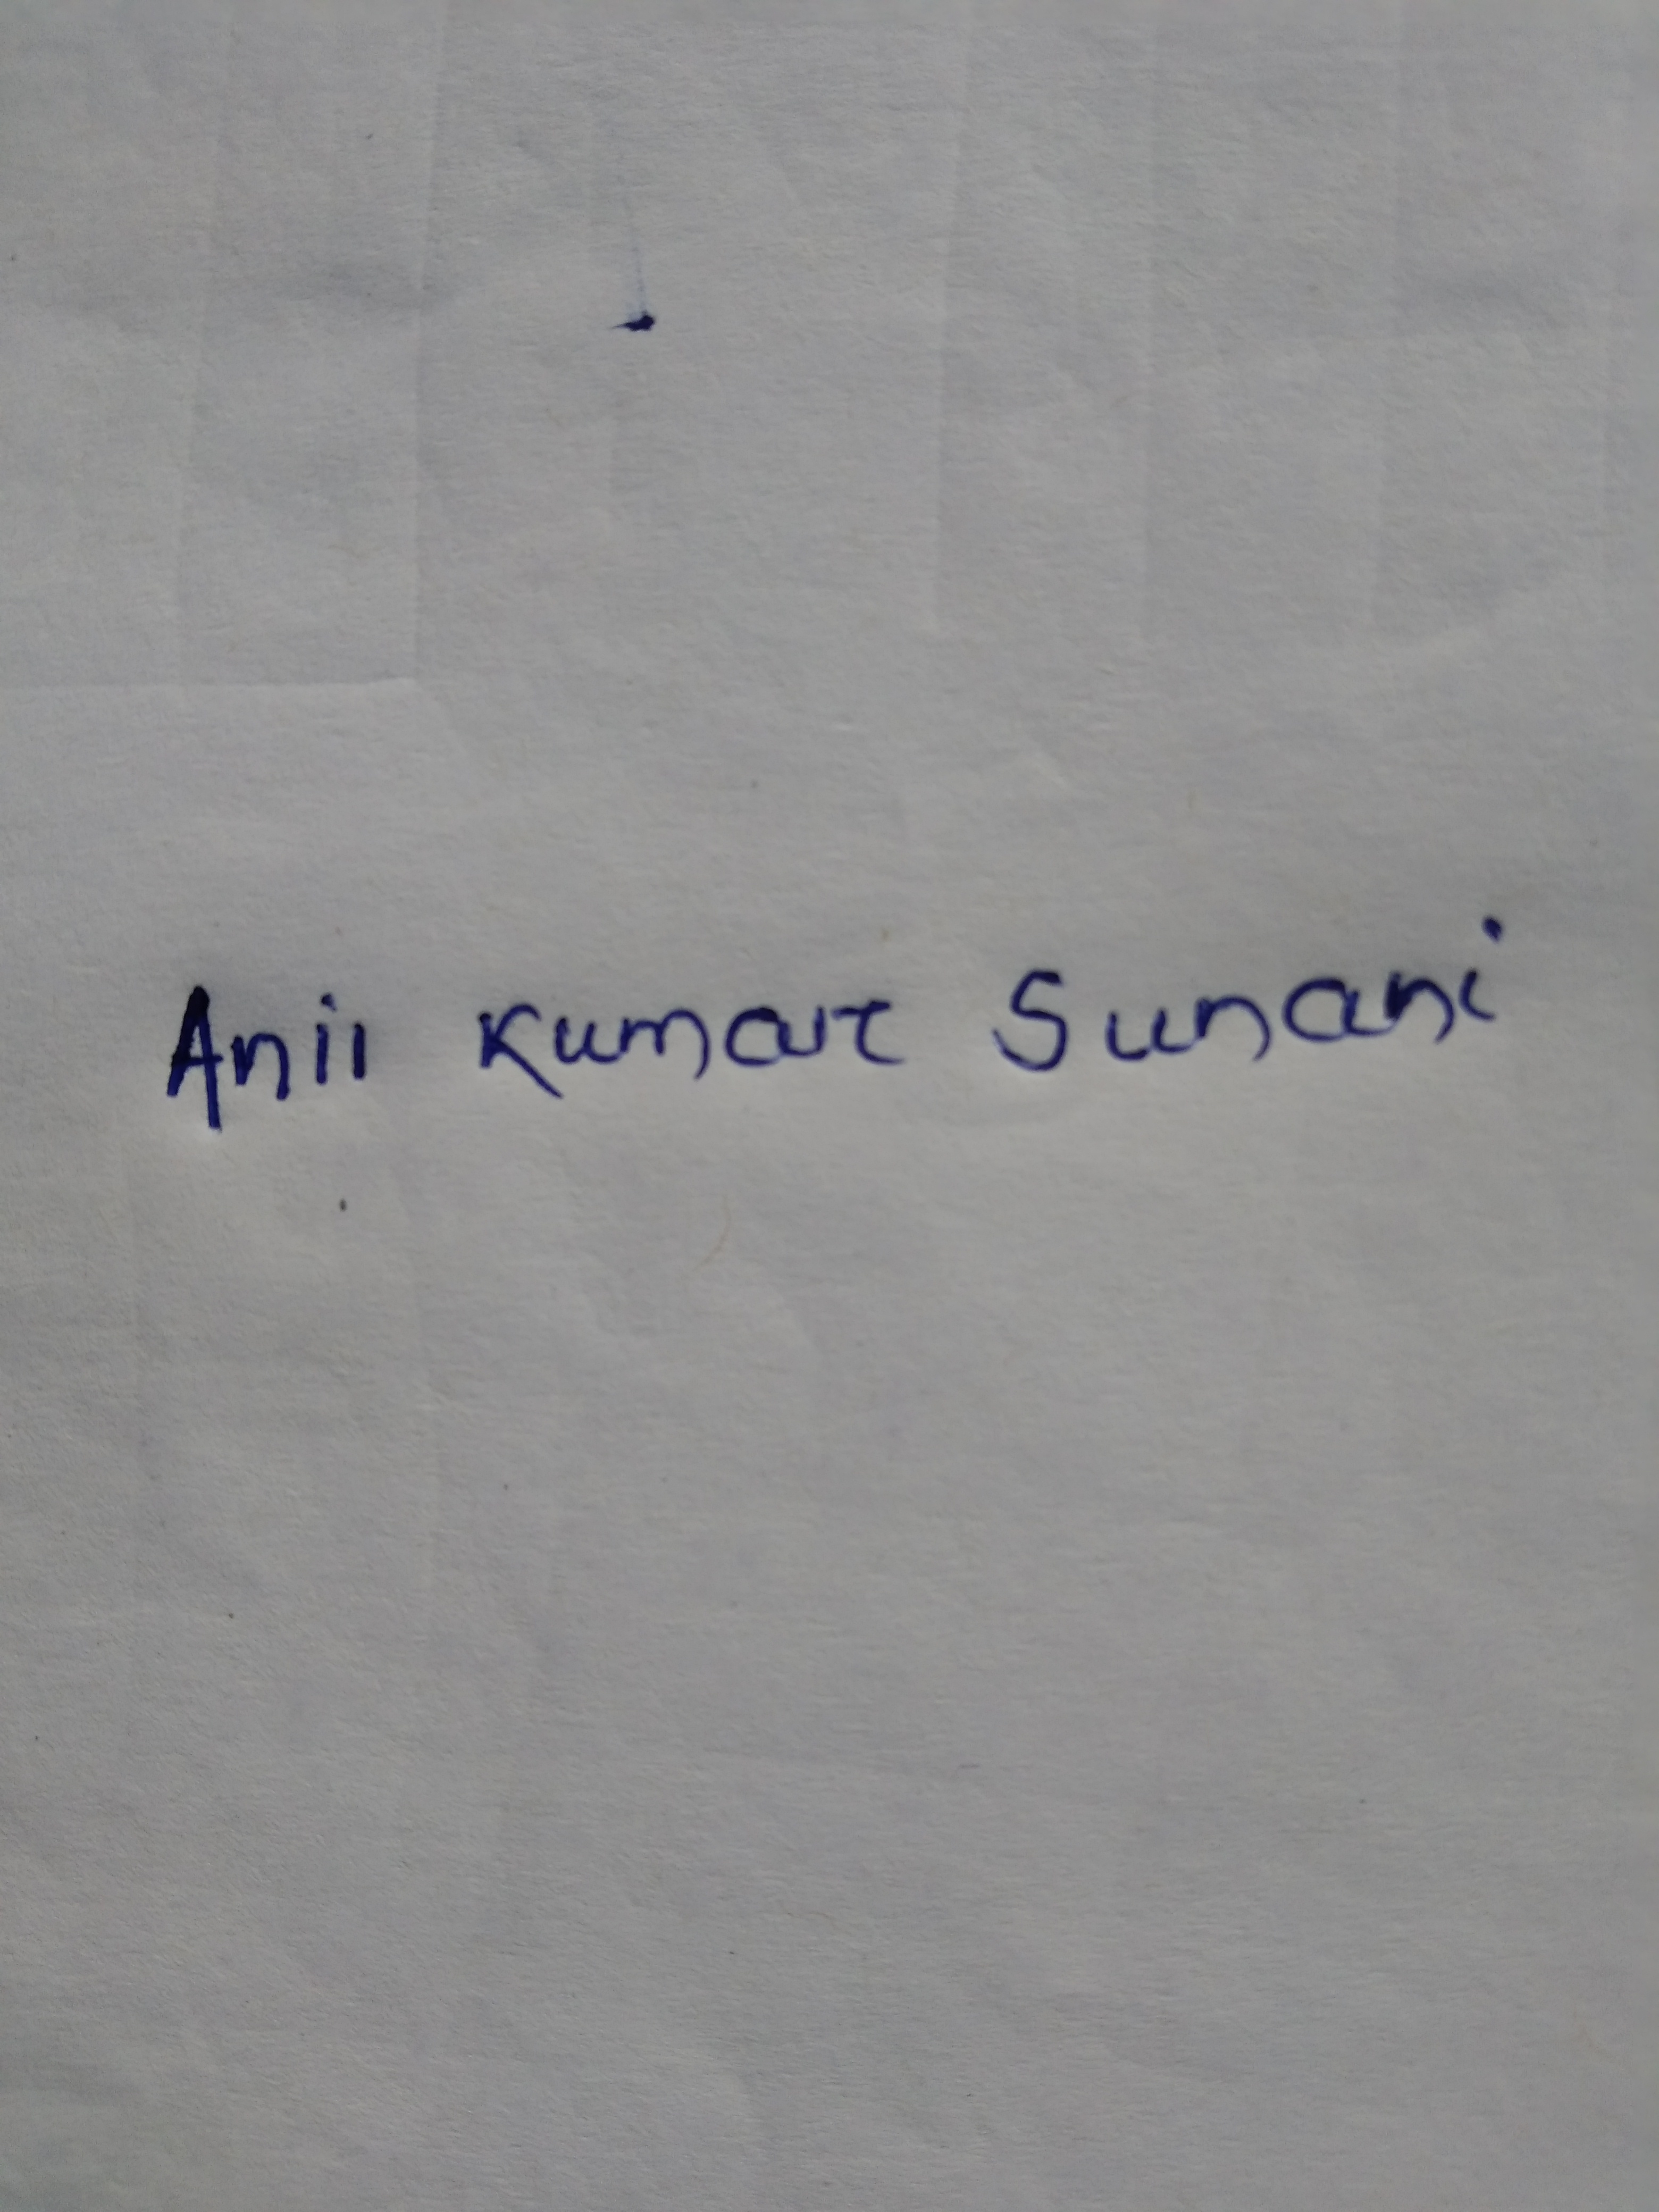 Anil Kumar Sunani